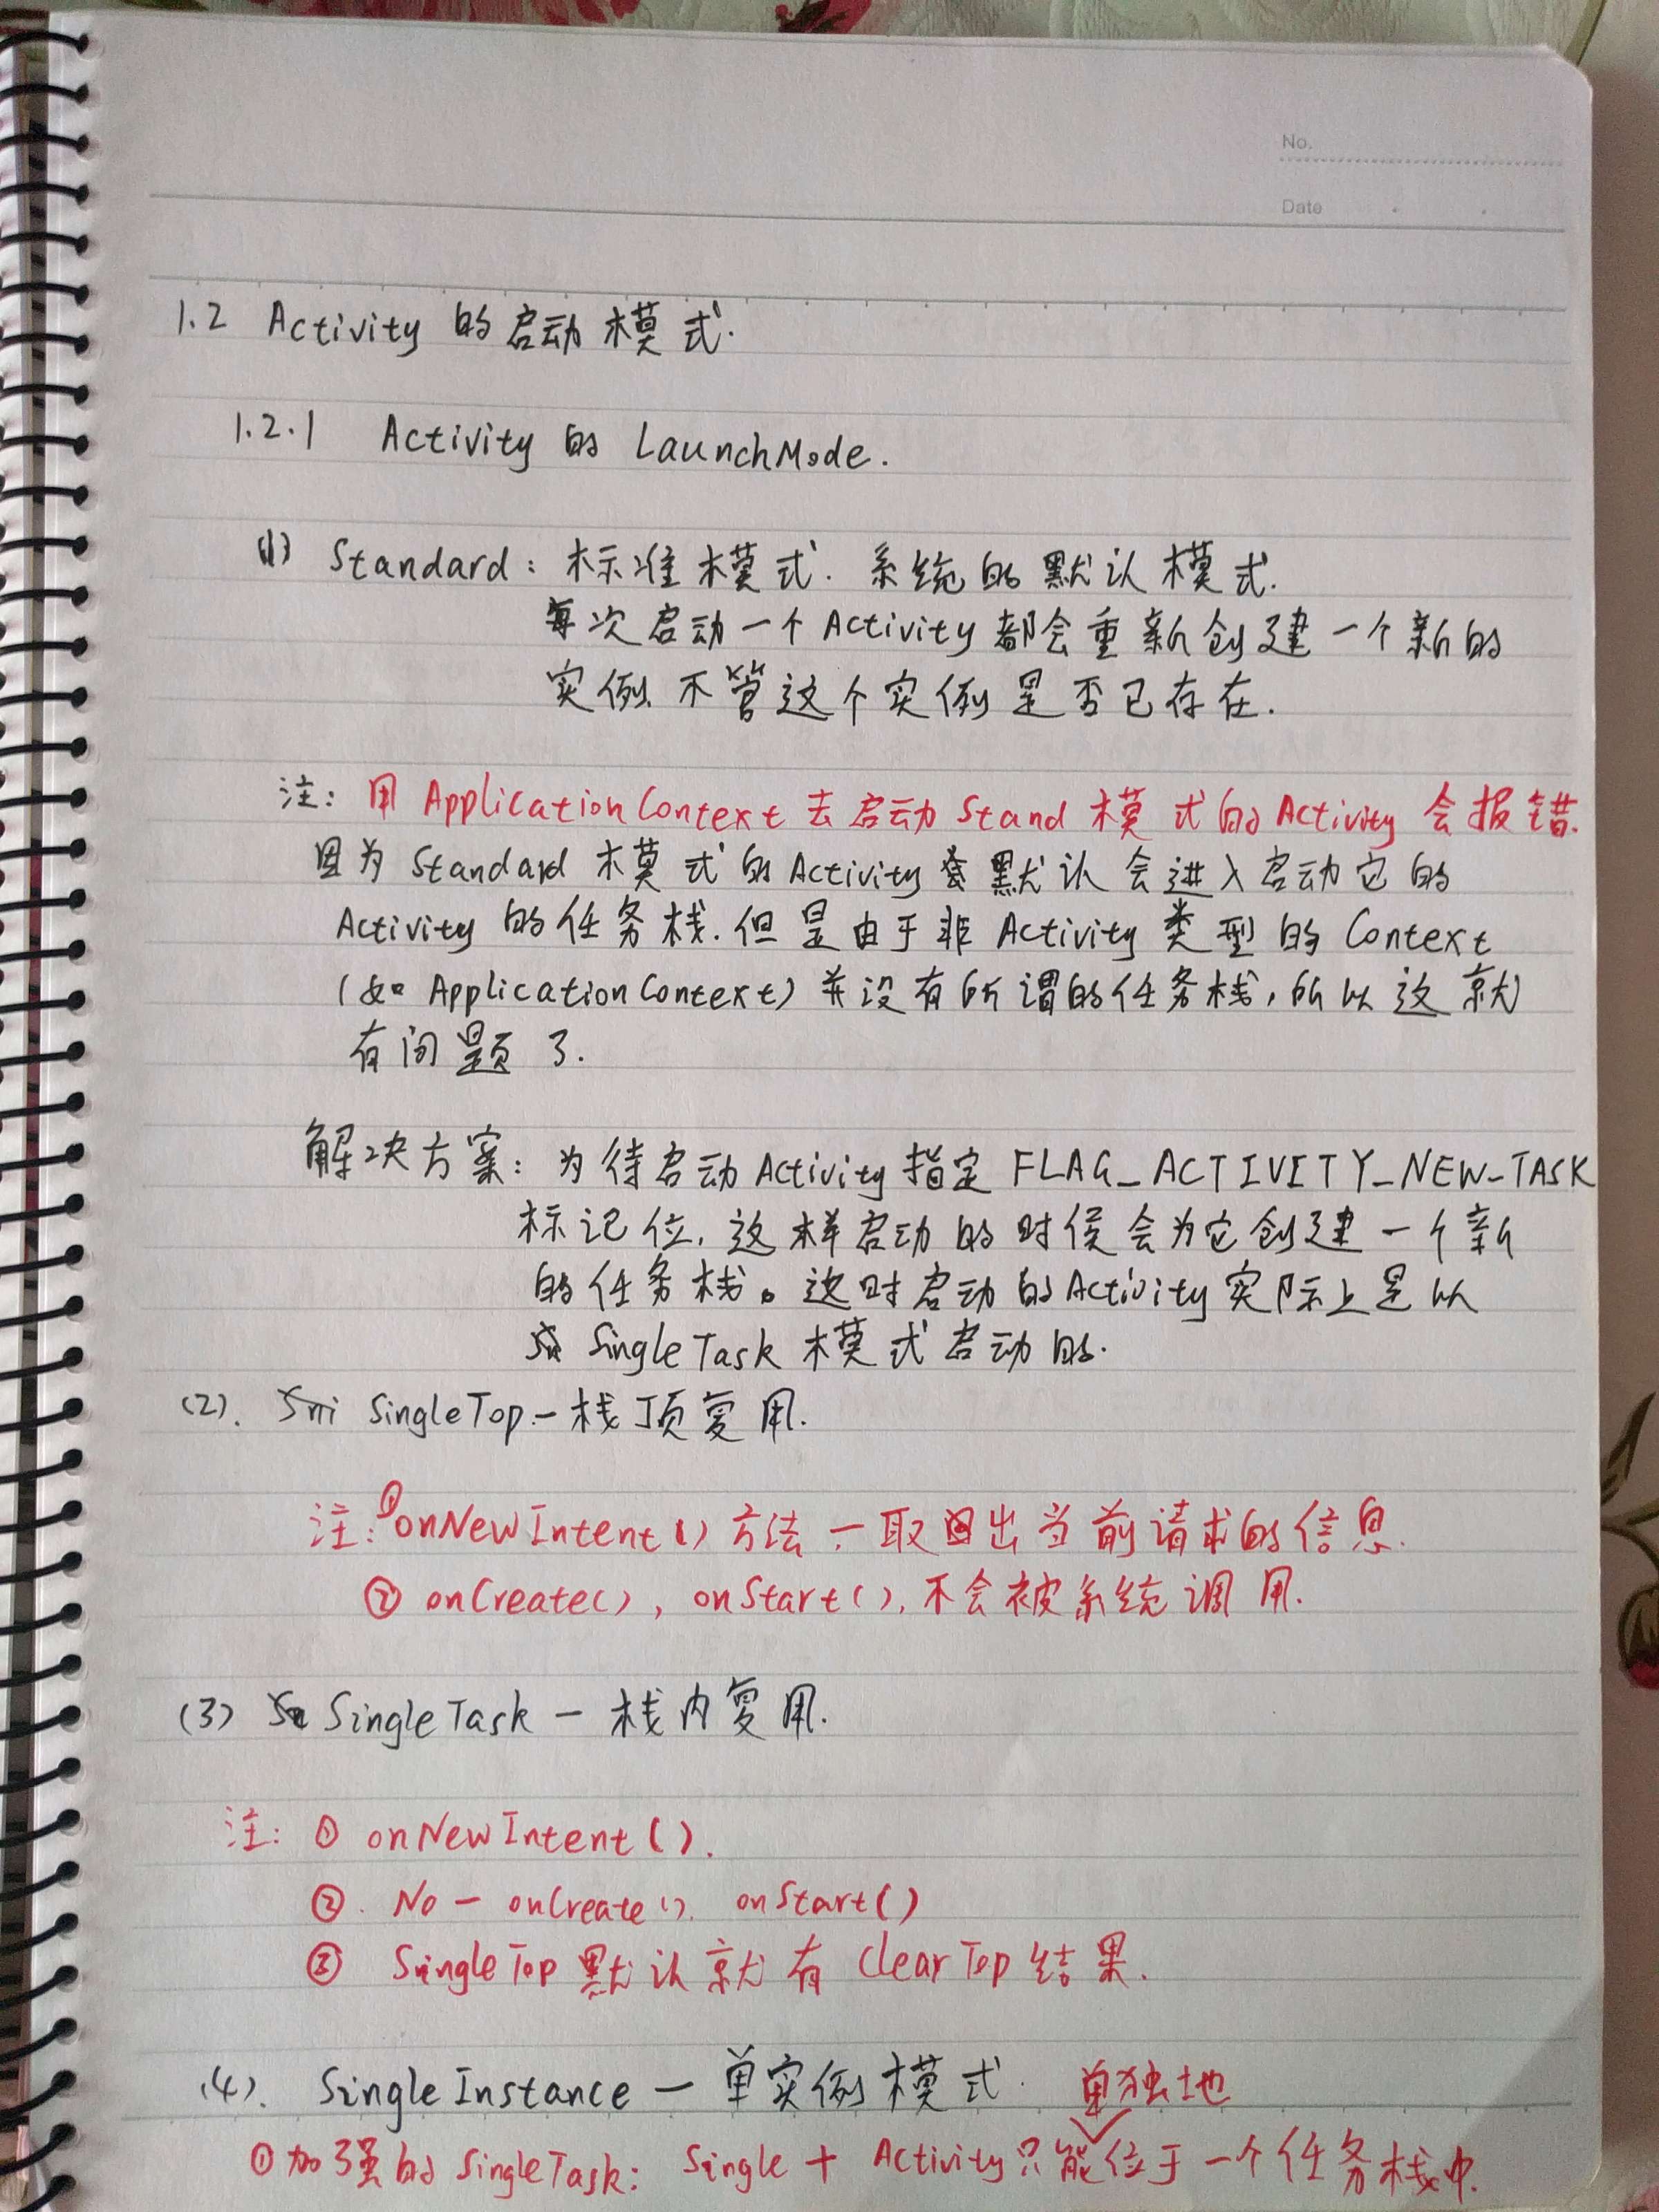 No.
Date
1.2 Activity 的启动模式.
1.2.1 Activity 的 LaunchMode.
(1) Standard: 标准模式. 系统的默认模式.
每次启动一个 Activity 都会重新创建一个新的
实例. 不管这个实例是否已存在.
注: 用 ApplicationContext 去启动 Stand 模式的 Activity 会报错.
因为 Standard 模式的 Activity 默认会进入启动它的
Activity 的任务栈. 但是由于非 Activity 类型的 Context
(如 ApplicationContext) 并没有所谓的任务栈, 所以这就
有问题了.
解决方案: 为待启动 Activity 指定 FLAG_ACTIVITY_NEW_TASK
标记位, 这样启动的时侯会为它创建一个新
的任务栈。这时启动的 Activity 实际上是以
SingleTask 模式启动的.
(2). SingleTop - 栈顶复用.
注: ① onNewIntent() 方法 - 取出当前请求的信息.
② onCreate(), onStart(), 不会被系统调用.
(3) SingleTask - 栈内复用.
注: ① onNewIntent().
②. No - onCreate(). onStart()
③ SingleTop 默认就有 ClearTop 结果.
(4). SingleInstance - 单实例模式. 单独地
① 加强的 SingleTask: Single + Activity 只能位于一个任务栈中.